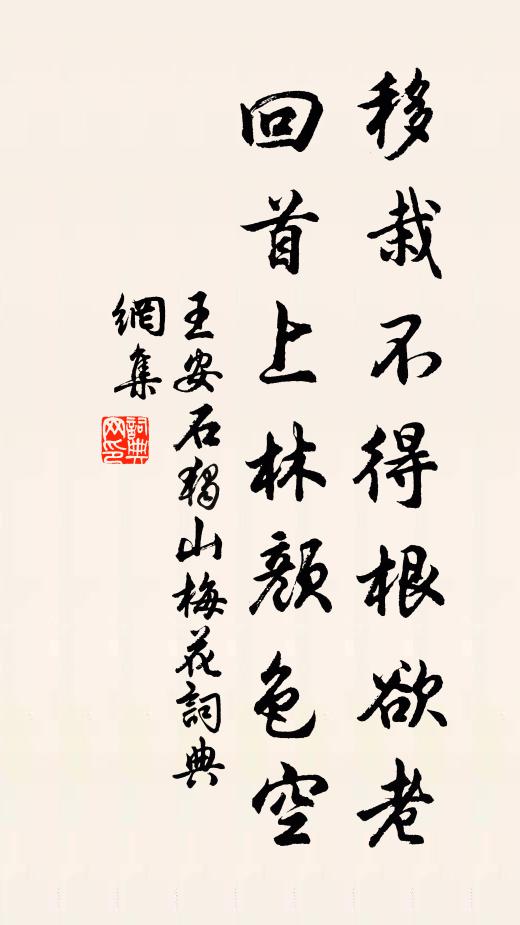 移栽不得根欲老
回首上林颜色空
王安石独山梅花詞典
網集
詞典网印